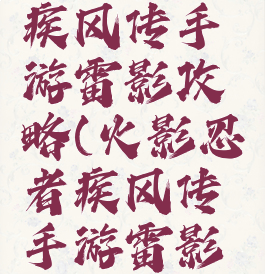 疾风传手
游雷影攻
略(火影忍
者疾风传
手游雷影